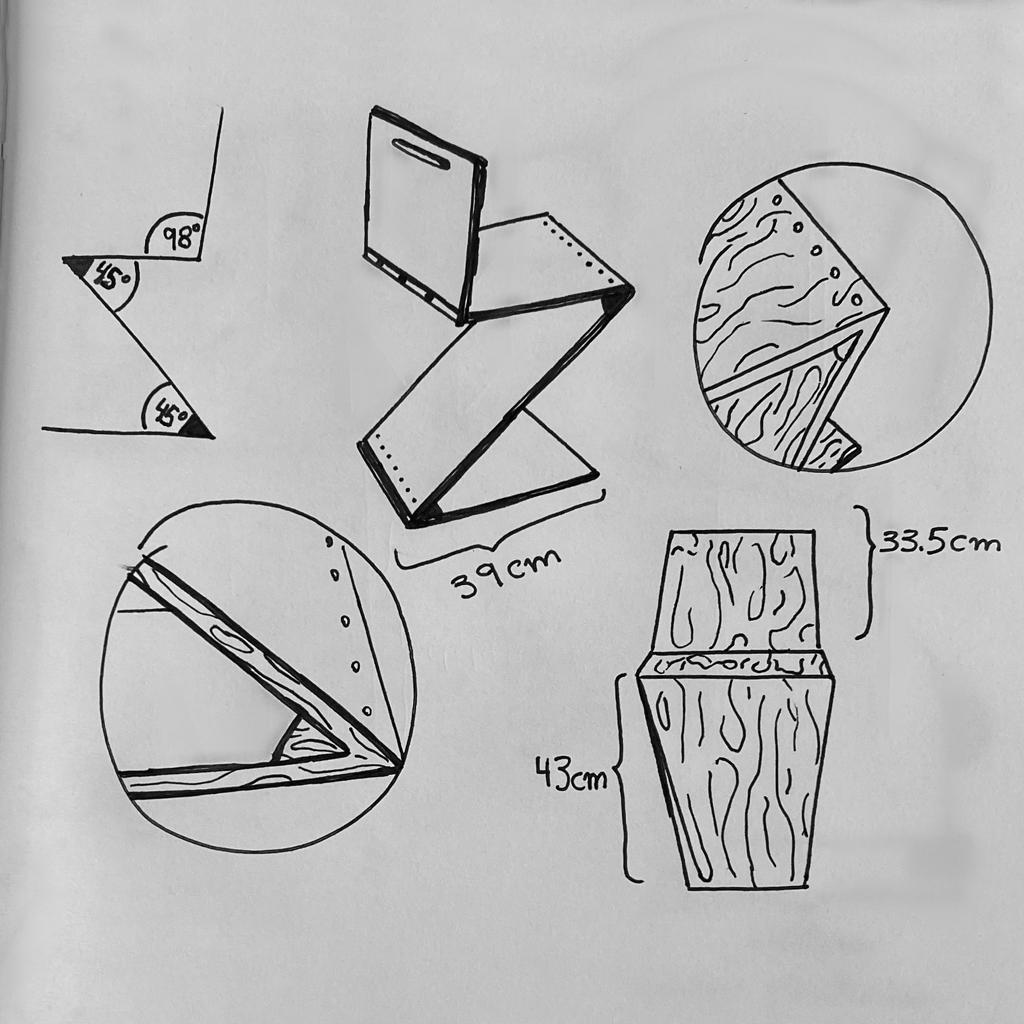 98°
45°
45°
39cm
33.5cm
43cm